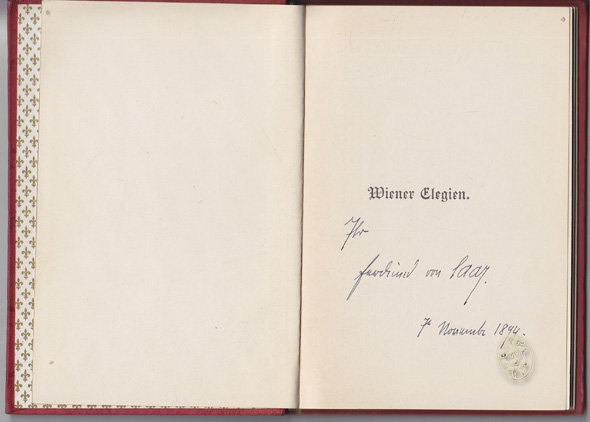 Wiener Elegien.
Ihr
Ferdinand von Saar.
7t November 1894.